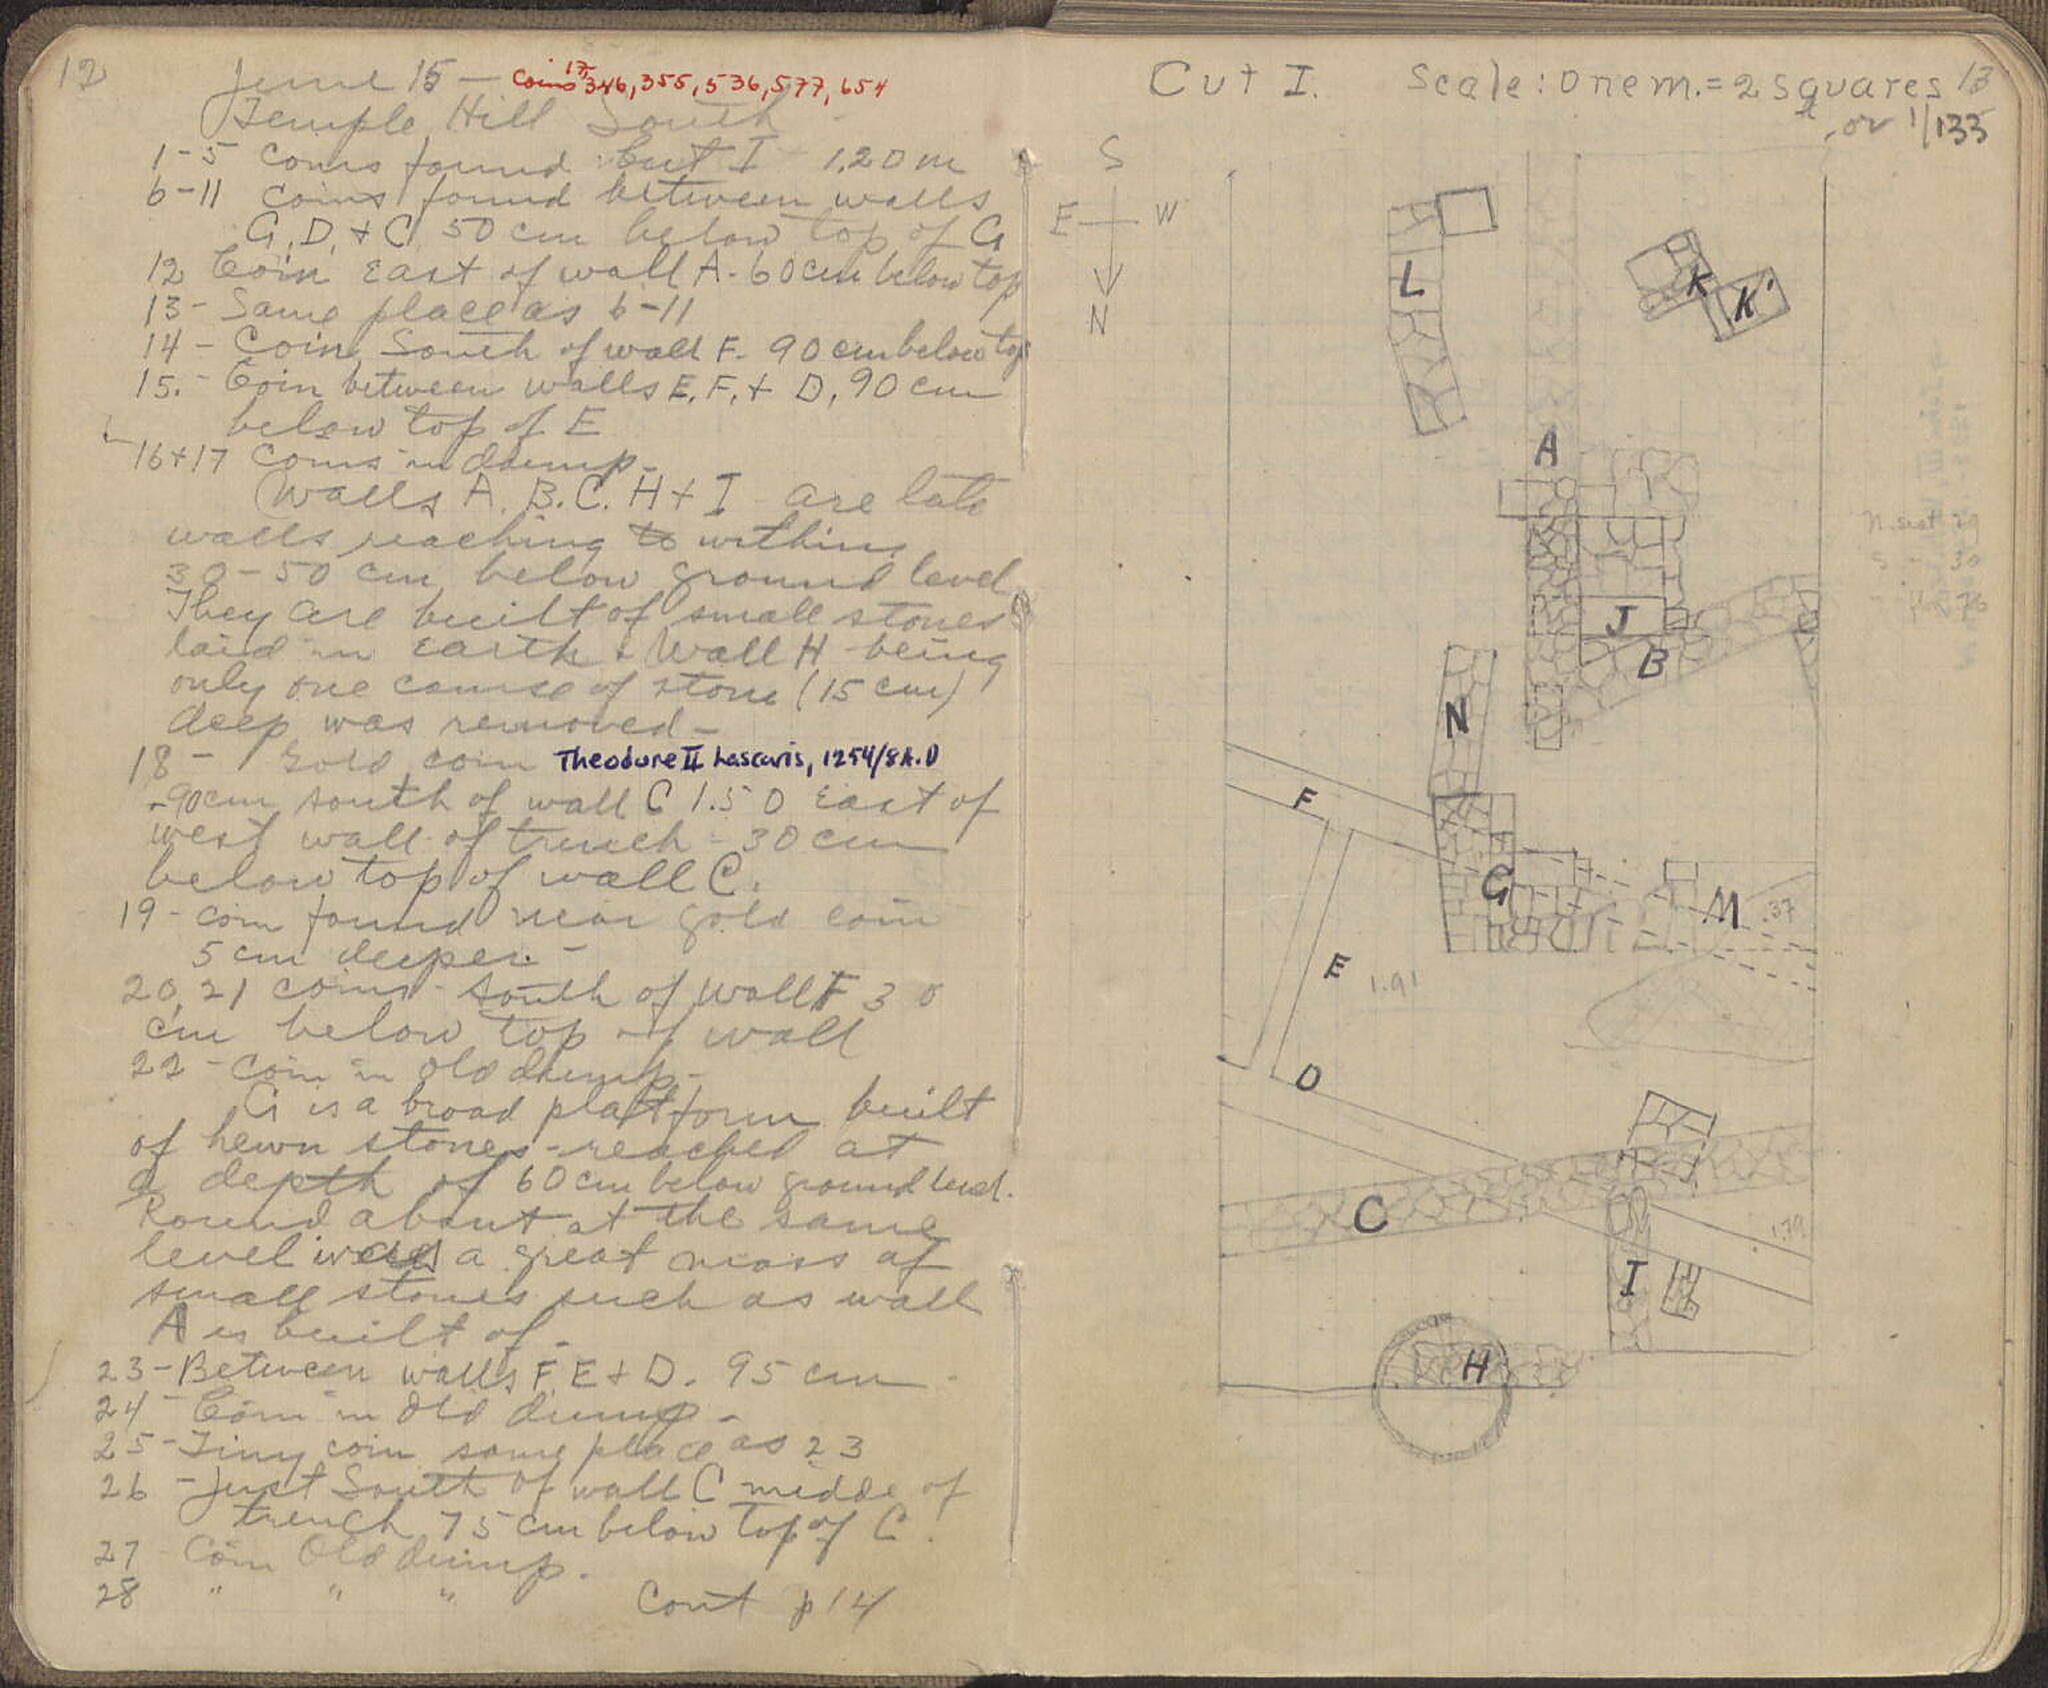 12
June 15 — Coins 17, 346, 355, 536, 577, 654
Temple Hill South
1-5 Coins found Cut I 1.20 m
6-11 Coins found between walls
G, D, + C 50 cm below top of G
12 Coin East of wall A. 60 cm below top
13 - Same place as 6-11
14 - Coin South of wall F. 90 cm below top
15. - Coin between walls E, F, + D, 90 cm
below top of E
16+17 Coins in dump -
Walls A. B. C. H + I are late
walls reaching to within
30-50 cm below ground level
They are built of small stones
laid in earth. Wall H being
only one course of stone (15 cm)
deep was removed -
18 - Gold coin Theodore II Lascaris, 1254/8 A.D
.90 cm south of wall C 1.50 East of
west wall of trench - 30 cm
below top of wall C.
19 - coin found near gold coin
5 cm deeper. -
20, 21 coins - South of Wall F 30
cm below top of wall
22 - Coin in old dump -
G is a broad platform built
of hewn stones - reached at
a depth of 60 cm below ground level.
Round about at the same
level was a great mass of
small stones such as wall
A is built of -
23 - Between walls F E + D. 95 cm
24 - Coin in Old dump -
25 - Tiny coin same place as 23
26 - Just South of wall C midde of
trench 75 cm below top of C.
27 Coin Old dump.
28 " " "
Cont p 14
Cut I. Scale: one m. = 2 squares 13
or 1/133
S
E W
N
L
K
K'
A
J
B
N
F
G
M .37
E 1.91
D
C
1.79
I
H